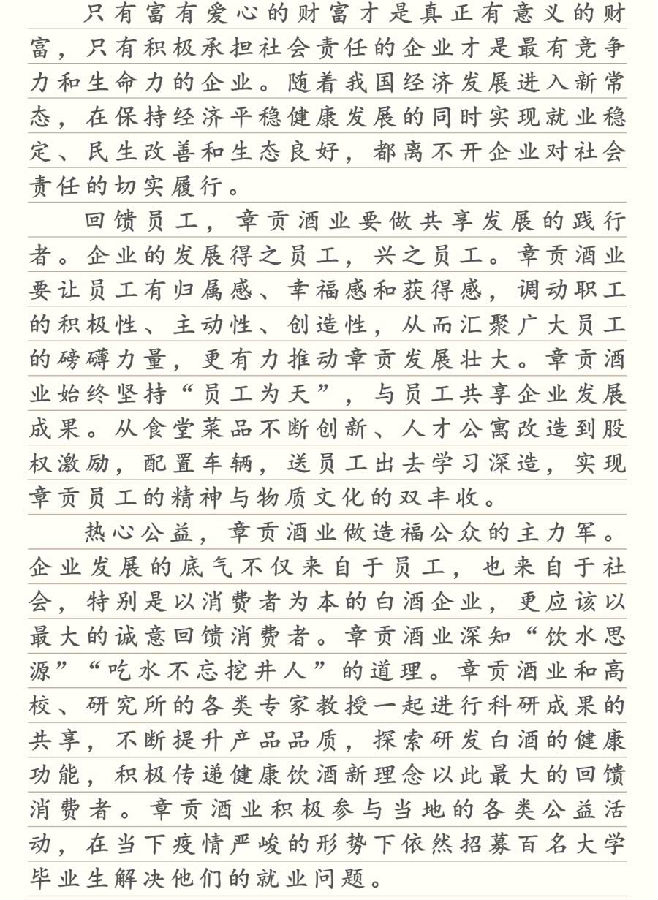 只有富有爱心的财富才是真正有意义的财
富，只有积极承担社会责任的企业才是最有竞争
力和生命力的企业。随着我国经济发展进入新常
态，在保持经济平稳健康发展的同时实现就业稳
定、民生改善和生态良好，都离不开企业对社会
责任的切实履行。
回馈员工，章贡酒业要做共享发展的践行
者。企业的发展得之员工，兴之员工。章贡酒业
要让员工有归属感、幸福感和获得感，调动职工
的积极性、主动性、创造性，从而汇聚广大员工
的磅礴力量，更有力推动章贡发展壮大。章贡酒
业始终坚持“员工为天”，与员工共享企业发展
成果。从食堂菜品不断创新、人才公寓改造到股
权激励，配置车辆，送员工出去学习深造，实现
章贡员工的精神与物质文化的双丰收。
热心公益，章贡酒业做造福公众的主力军。
企业发展的底气不仅来自于员工，也来自于社
会，特别是以消费者为本的白酒企业，更应该以
最大的诚意回馈消费者。章贡酒业深知“饮水思
源”“吃水不忘挖井人”的道理。章贡酒业和高
校、研究所的各类专家教授一起进行科研成果的
共享，不断提升产品品质，探索研发白酒的健康
功能，积极传递健康饮酒新理念以此最大的回馈
消费者。章贡酒业积极参与当地的各类公益活
动，在当下疫情严峻的形势下依然招募百名大学
毕业生解决他们的就业问题。